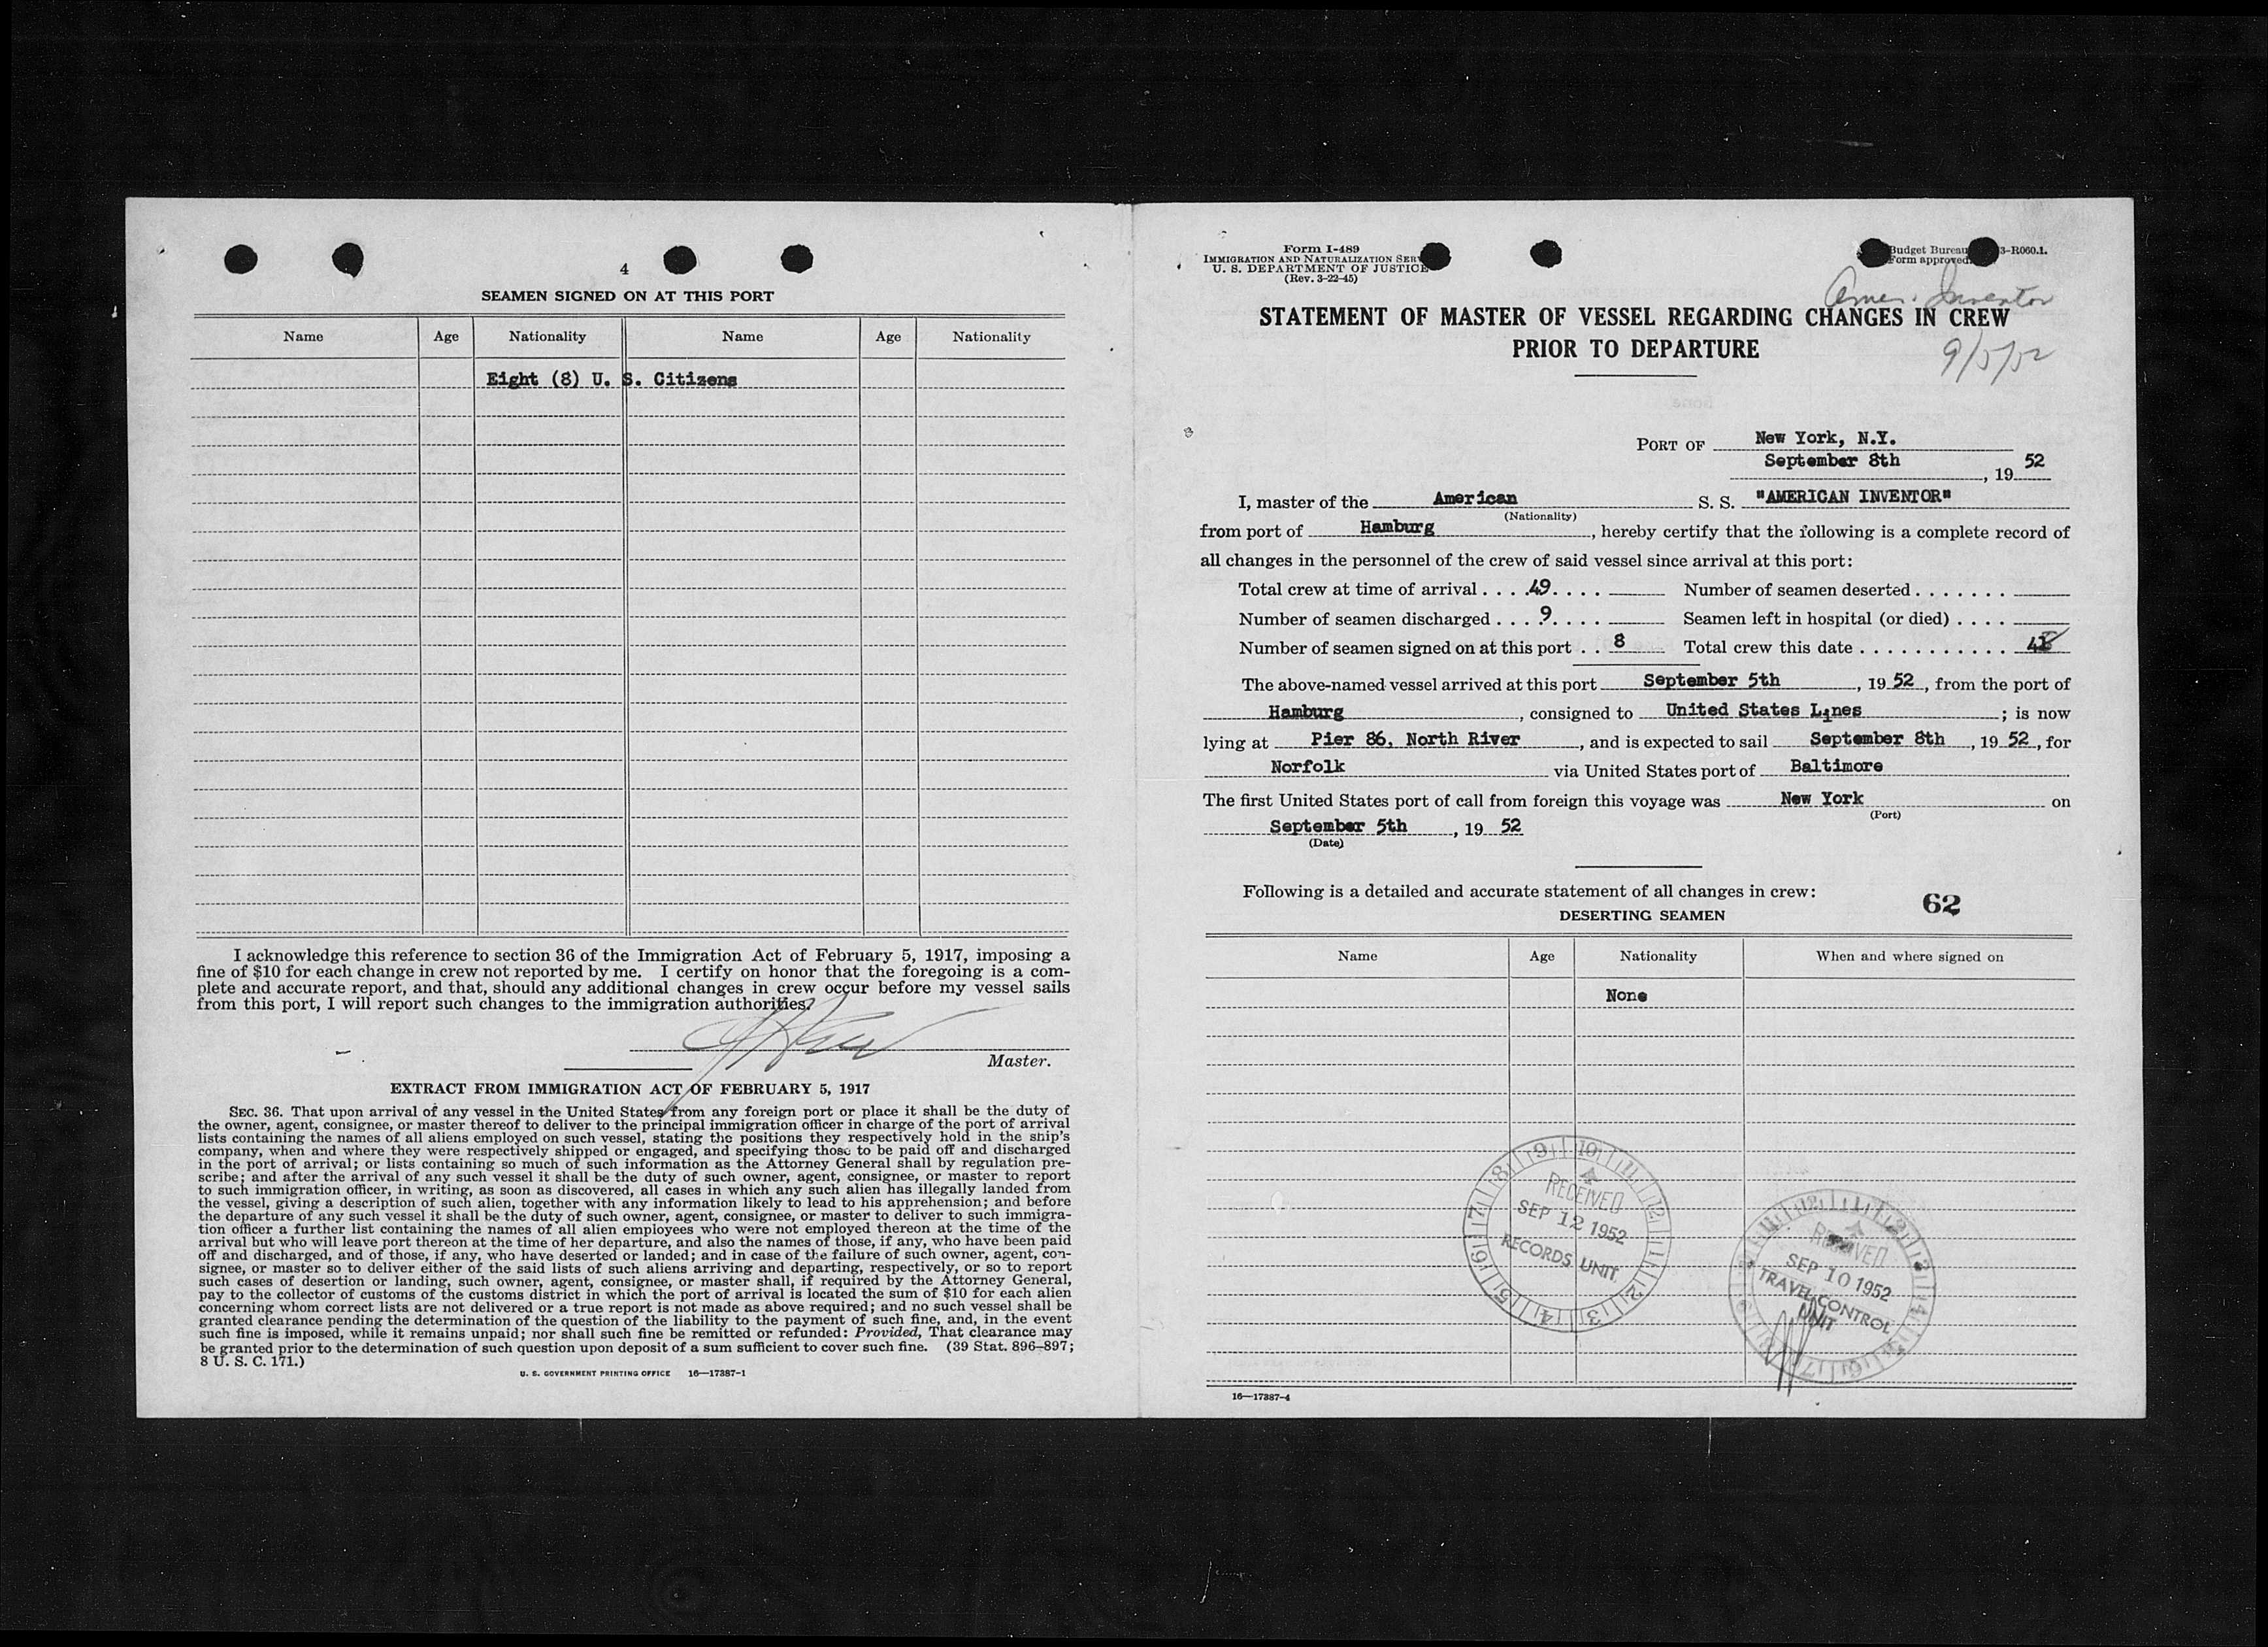 4
SEAMEN SIGNED ON AT THIS PORT
Name Age Nationality Name Age Nationality
Eight (8) U. S. Citizens
I acknowledge this reference to section 36 of the Immigration Act of February 5, 1917, imposing a
fine of $10 for each change in crew not reported by me. I certify on honor that the foregoing is a com-
plete and accurate report, and that, should any additional changes in crew occur before my vessel sails
from this port, I will report such changes to the immigration authorities.
Master.
EXTRACT FROM IMMIGRATION ACT OF FEBRUARY 5, 1917
SEC. 36. That upon arrival of any vessel in the United States from any foreign port or place it shall be the duty of
the owner, agent, consignee, or master thereof to deliver to the principal immigration officer in charge of the port of arrival
lists containing the names of all aliens employed on such vessel, stating the positions they respectively hold in the ship's
company, when and where they were respectively shipped or engaged, and specifying those to be paid off and discharged
in the port of arrival; or lists containing so much of such information as the Attorney General shall by regulation pre-
scribe; and after the arrival of any such vessel it shall be the duty of such owner, agent, consignee, or master to report
to such immigration officer, in writing, as soon as discovered, all cases in which any such alien has illegally landed from
the vessel, giving a description of such alien, together with any information likely to lead to his apprehension; and before
the departure of any such vessel it shall be the duty of such owner, agent, consignee, or master to deliver to such immigra-
tion officer a further list containing the names of all alien employees who were not employed thereon at the time of the
arrival but who will leave port thereon at the time of her departure, and also the names of those, if any, who have been paid
off and discharged, and of those, if any, who have deserted or landed; and in case of the failure of such owner, agent, con-
signee, or master so to deliver either of the said lists of such aliens arriving and departing, respectively, or so to report
such cases of desertion or landing, such owner, agent, consignee, or master shall, if required by the Attorney General,
pay to the collector of customs of the customs district in which the port of arrival is located the sum of $10 for each alien
concerning whom correct lists are not delivered or a true report is not made as above required; and no such vessel shall be
granted clearance pending the determination of the question of the liability to the payment of such fine, and, in the event
such fine is imposed, while it remains unpaid; nor shall such fine be remitted or refunded: Provided, That clearance may
be granted prior to the determination of such question upon deposit of a sum sufficient to cover such fine. (39 Stat. 896–897;
8 U. S. C. 171.)
U. S. GOVERNMENT PRINTING OFFICE 16—17387-1
Form I-489
IMMIGRATION AND NATURALIZATION SERV
U. S. DEPARTMENT OF JUSTICE
(Rev. 3-22-45)
Budget Bureau 3-R060.1.
Form approved
Amer. Inventor
STATEMENT OF MASTER OF VESSEL REGARDING CHANGES IN CREW
PRIOR TO DEPARTURE
9/5/52
PORT OF New York, N.Y.
September 8th, 19 52
I, master of the American S. S. "AMERICAN INVENTOR"
(Nationality)
from port of Hamburg, hereby certify that the following is a complete record of
all changes in the personnel of the crew of said vessel since arrival at this port:
Total crew at time of arrival . . . .49. . . . Number of seamen deserted . . . . . . .
Number of seamen discharged . . . .9. . . . Seamen left in hospital (or died) . . . .
Number of seamen signed on at this port . . 8 Total crew this date . . . . . . . . . . . 48
The above-named vessel arrived at this port September 5th, 19 52, from the port of
Hamburg, consigned to United States Lines; is now
lying at Pier 86, North River, and is expected to sail September 8th, 19 52, for
Norfolk via United States port of Baltimore
The first United States port of call from foreign this voyage was New York on
(Port)
September 5th, 19 52
(Date)
Following is a detailed and accurate statement of all changes in crew:
62
DESERTING SEAMEN
Name Age Nationality When and where signed on
None
RECEIVED
SEP 12 1952
RECORDS UNIT
RECEIVED
SEP 10 1952
TRAVEL CONTROL
UNIT
16—17387-4